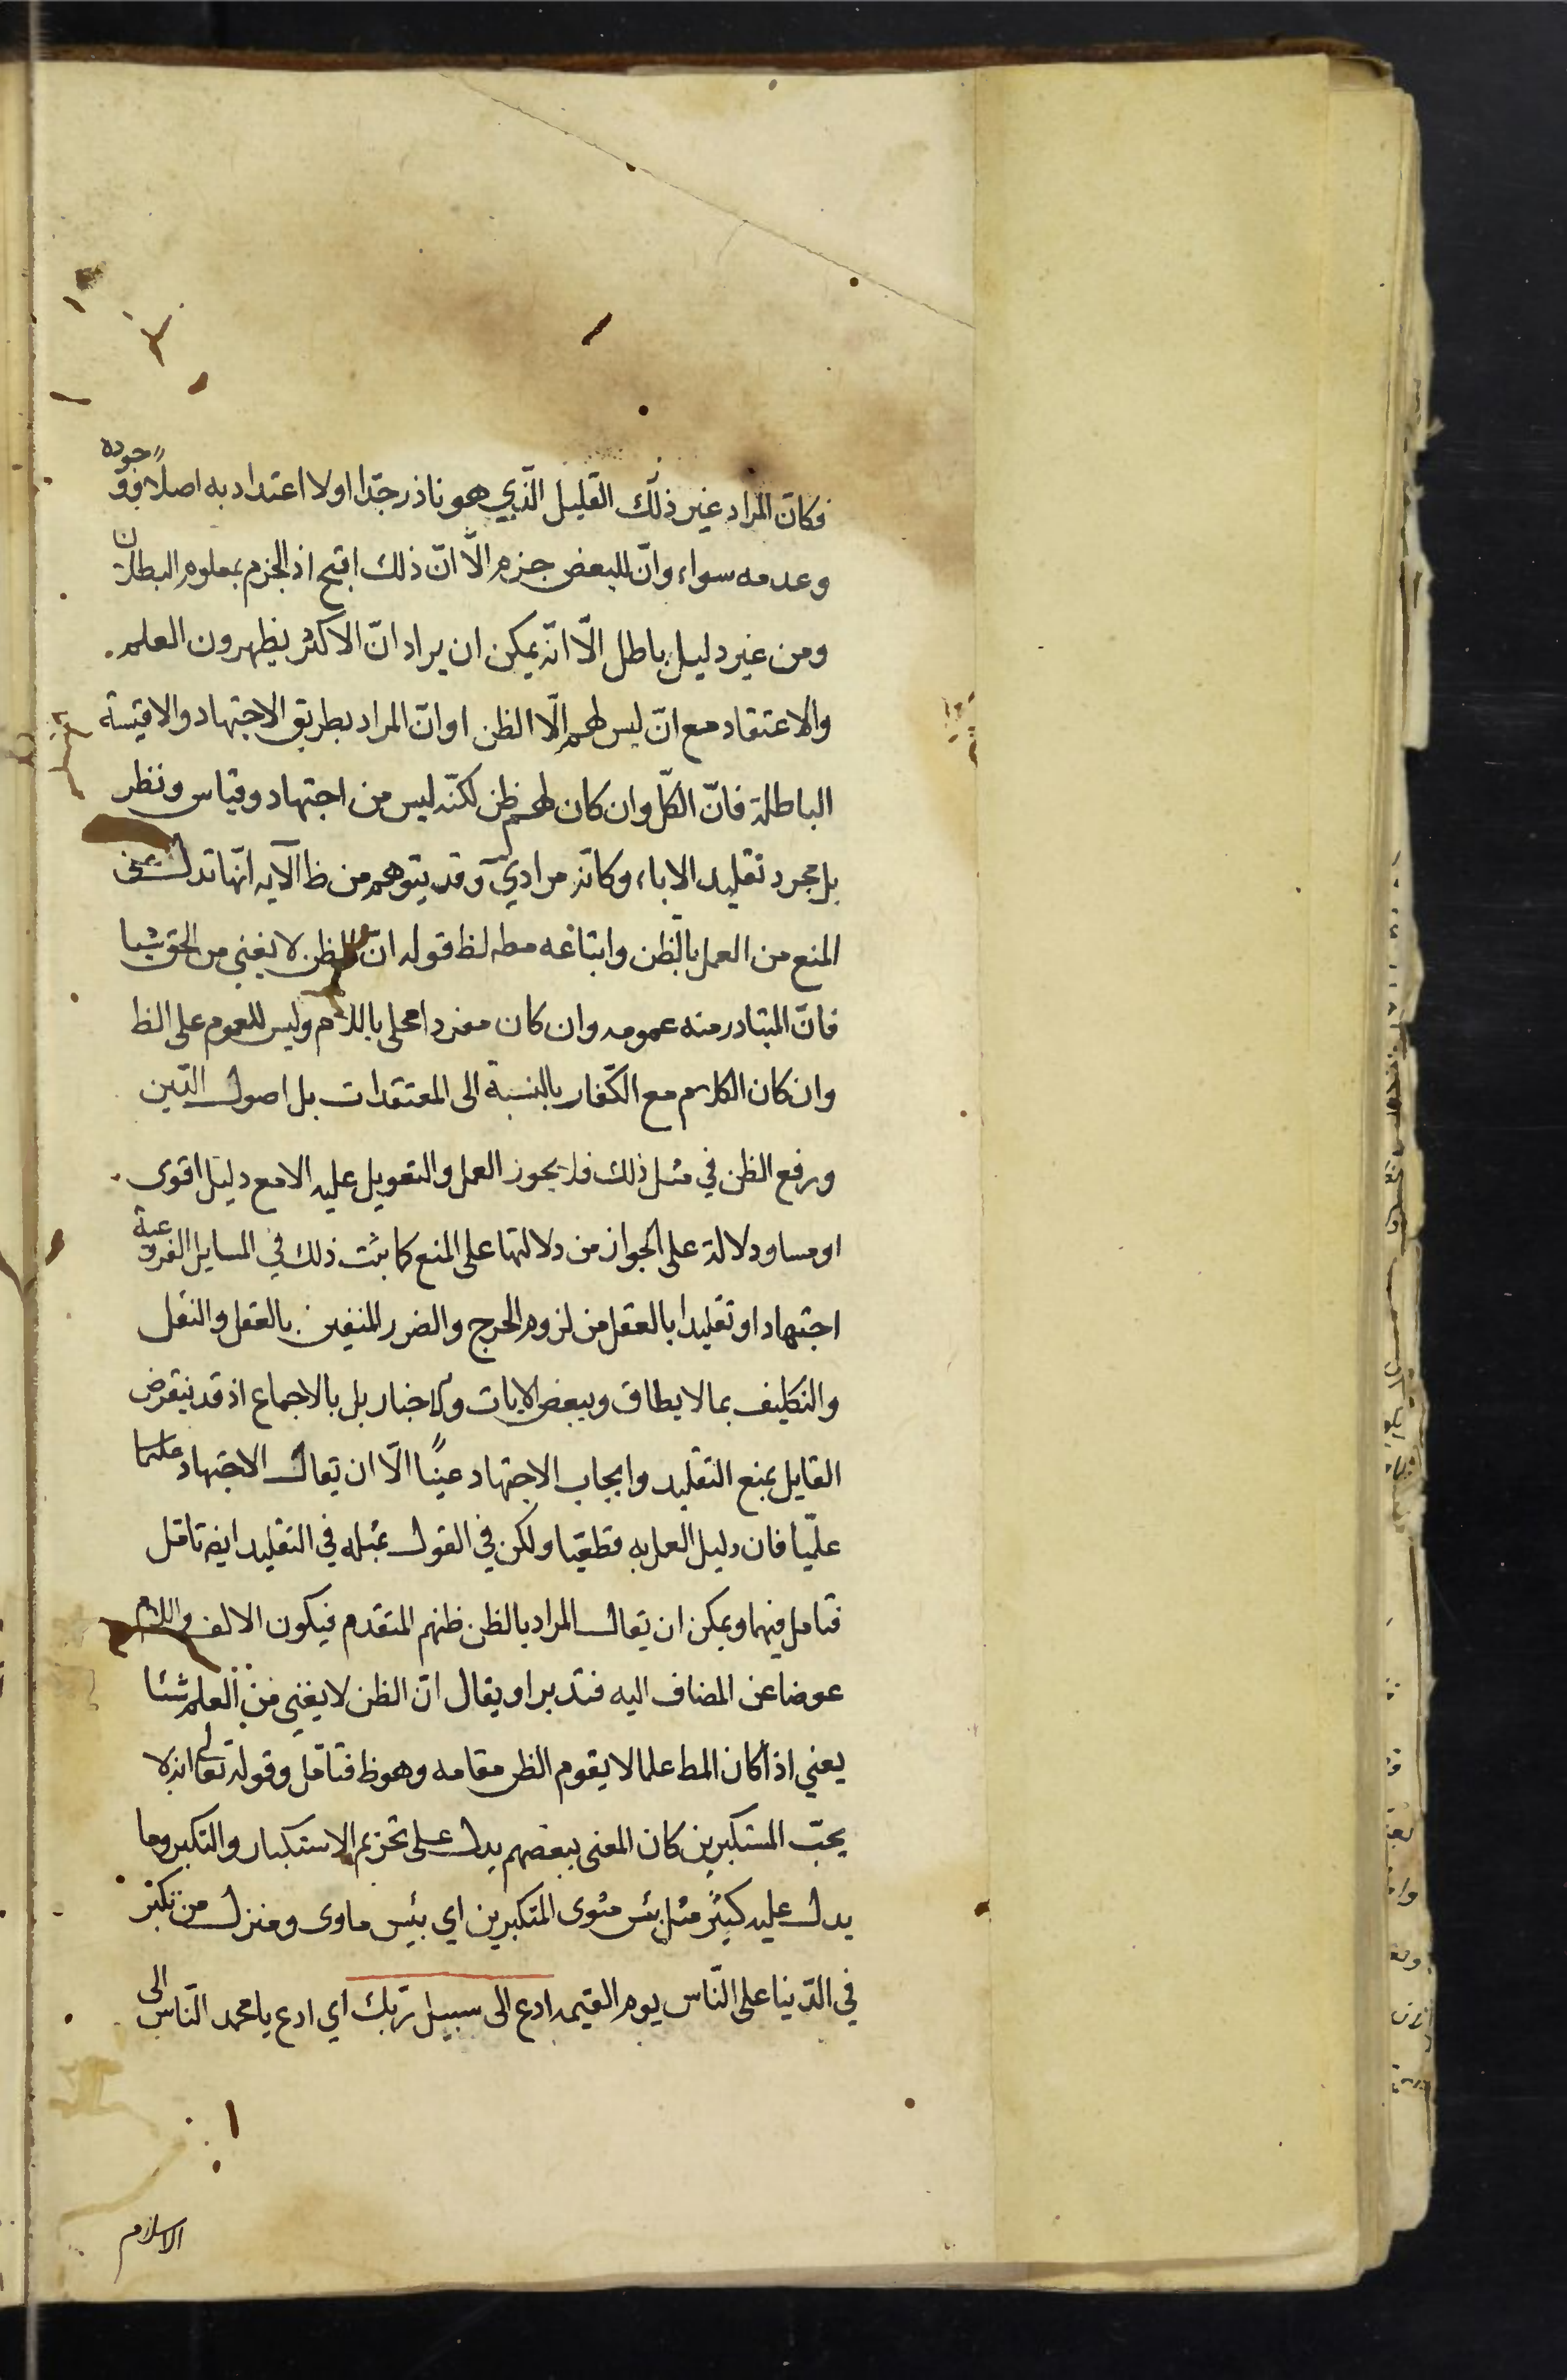 فكان المراد غير ذلك القليل الذي هو نادر جدّا اولا اعتداد به اصلاً فوجوده
وعدمه سواء وانّ للبعض جزم الّا انّ ذلك اقبح اذ الجزم بمعلوم البطلان
ومن غير دليل باطل الّا انّه يمكن ان يراد انّ الاكثر يظهرون العلم
والاعتقاد مع انّ ليس لهم الّا الظن او انّ المراد بطريق الاجتهاد والاقيسة
الباطلة فانّ الكلّ وان كان لهم ظن لكنّه ليس من اجتهاد وقياس ونظر
بل مجرد تقليد الاباء وكانّه مراد يٓ وقد يتوهم من ظ الآية انّها تدل على
المنع من العمل بالظن واتباعه مطه لظ قوله انّ الظن لا يغني من الحق شيا
فانّ المتبادر منه عمومه وان كان مفردا محلى باللام وليس للعموم على الظ
وان كان الكلام مع الكفّار بالنسبة الى المعتقدات بل اصول الدّين
ورفع الظن في مثل ذلك فلا يجوز العمل والتعويل عليه الا مع دليل اقوى
او مساو دلالة على الجواز من دلالتها على المنع كما ثبت ذلك في المسايل الفروعية
اجتهاد او تقليدا بالعقل من لزوم الحرج والضرر المنفيين بالعقل والنقل
والتكليف بما لا يطاق وببعض الايات والاخبار بل بالاجماع اذ قد ينقرض
القايل بمنع التقليد وايجاب الاجتهاد عينًا الّا ان يقال الاجتهاد علما
علميّا فان دليل العمل به قطعيا ولكن في القول بمثله في التقليد ايضا تامّل
فتامل فيهما ويمكن ان يقال المراد بالظن ظنهم المتقدم فيكون الالف واللام
عوضا عن المضاف اليه فتدبر او يقال انّ الظن لا يغني من العلم شئا
يعني اذا كان المط علما لا يقوم الظن مقامه وهو ظ فتامّل وقوله تعالى انه لا
يحبّ المستكبرين كان المعنى يبغضهم يدل على تحريم الاستكبار والتكبر وما
يدل عليه كثير مثل بئس مثوى المتكبرين اي بئيس ماوى ومنزل من تكبّر
في الدّنيا على النّاس يوم القيمه ادع الى سبيل ربّك اي ادع يا محمد النّاس الى
الاسلام